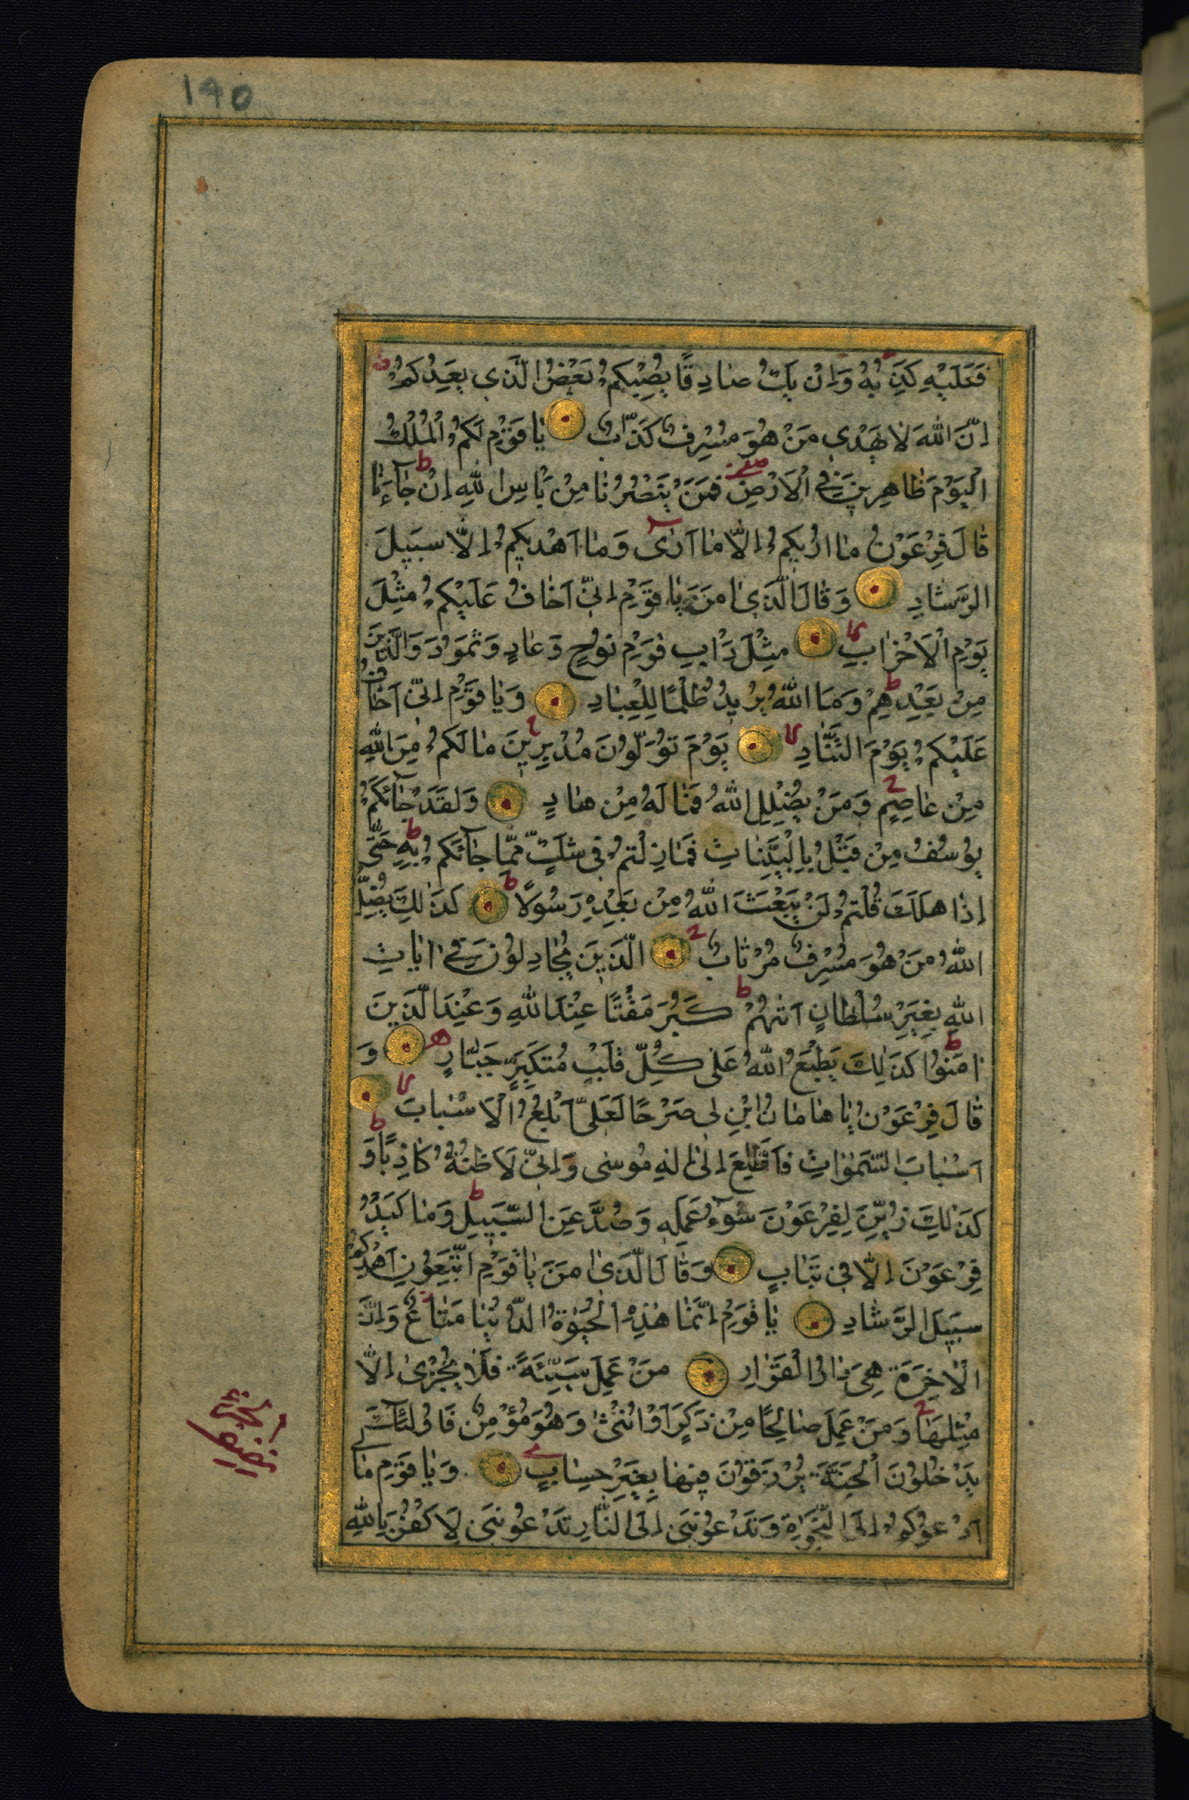 190
فَعَلَيْهِ كَذِبُهُ وَاِنْ يَكُ صَادِقًا يُصِبْكُمْ بَعْضُ الَّذى يَعِدُكُمْ
اِنَّ اللهَ لَا يَهْدى مَنْ هُوَ مُسْرِفٌ كَذَّابٌ يَا قَوْمِ لَكُمُ الْمُلْكُ
الْيَوْمَ ظَاهِرينَ فِى الْاَرْضِ فَمَنْ يَنْصُرُنَا مِنْ بَاْسِ اللهِ اِنْ جَآءَنَا
قَالَ فِرْعَوْنُ مَا اُريكُمْ اِلَّا مَا اَرٰى وَمَا اَهْديكُمْ اِلَّا سَبيلَ
الرَّشَادِ وَقَالَ الَّذى اٰمَنَ يَا قَوْمِ اِنّى اَخَافُ عَلَيْكُمْ مِثْلَ
يَوْمِ الْاَحْزَابِ مِثْلَ دَاْبِ قَوْمِ نُوحٍ وَعَادٍ وَثَمُودَ وَالَّذينَ
مِنْ بَعْدِهِمْ وَمَا اللهُ يُريدُ ظُلْمًا لِلْعِبَادِ وَيَا قَوْمِ اِنّى اَخَافُ
عَلَيْكُمْ يَوْمَ التَّنَادِ يَوْمَ تُوَلُّونَ مُدْبِرينَ مَا لَكُمْ مِنَ اللهِ
مِنْ عَاصِمٍ وَمَنْ يُضْلِلِ اللهُ فَمَا لَهُ مِنْ هَادٍ وَلَقَدْ جَآئَكُمْ
يُوسُفُ مِنْ قَبْلُ بِالْبَيِّنَاتِ فَمَا زِلْتُمْ فى شَكٍّ مِمَّا جَآئَكُمْ بِهِ حَتّٰى
اِذَا هَلَكَ قُلْتُمْ لَنْ يَبْعَثَ اللهُ مِنْ بَعْدِهِ رَسُولًا كَذٰلِكَ يُضِلُّ
اللهُ مَنْ هُوَ مُسْرِفٌ مُرْتَابٌ الَّذينَ يُجَادِلُونَ فى اٰيَاتِ
اللهِ بِغَيْرِ سُلْطَانٍ اَتٰيهُمْ كَبُرَ مَقْتًا عِنْدَ اللهِ وَعِنْدَ الَّذينَ
اٰمَنُوا كَذٰلِكَ يَطْبَعُ اللهُ عَلٰى كُلِّ قَلْبِ مُتَكَبِّرٍ جَبَّارٍ وَ
قَالَ فِرْعَوْنُ يَا هَامَانُ ابْنِ لى صَرْحًا لَعَلّى اَبْلُغُ الْاَسْبَابَ
اَسْبَابَ السَّمٰوَاتِ فَاَطَّلِعَ اِلٰى اِلٰهِ مُوسٰى وَاِنّى لَاَظُنُّهُ كَاذِبًا وَ
كَذٰلِكَ زُيِّنَ لِفِرْعَوْنَ سُوٓءُ عَمَلِهِ وَصُدَّ عَنِ السَّبيلِ وَمَا كَيْدُ
فِرْعَوْنَ اِلَّا فى تَبَابٍ وَقَالَ الَّذى اٰمَنَ يَا قَوْمِ اتَّبِعُونِ اَهْدِكُمْ
سَبيلَ الرَّشَادِ يَا قَوْمِ اِنَّمَا هٰذِهِ الْحَيٰوةُ الدُّنْيَا مَتَاعٌ وَاِنَّ
الْاٰخِرَةَ هِىَ دَارُ الْقَرَارِ مَنْ عَمِلَ سَيِّئَةً فَلَا يُجْزٰى اِلَّا
مِثْلَهَا وَمَنْ عَمِلَ صَالِحًا مِنْ ذَكَرٍ اَوْ اُنْثٰى وَهُوَ مُؤْمِنٌ فَاُولٰئِكَ
يَدْخُلُونَ الْجَنَّةَ يُرْزَقُونَ فيهَا بِغَيْرِ حِسَابٍ وَيَا قَوْمِ مَا لى
اَدْعُوكُمْ اِلَى النَّجٰوةِ وَتَدْعُونَنى اِلَى النَّارِ تَدْعُونَنى لِاَكْفُرَ بِاللهِ